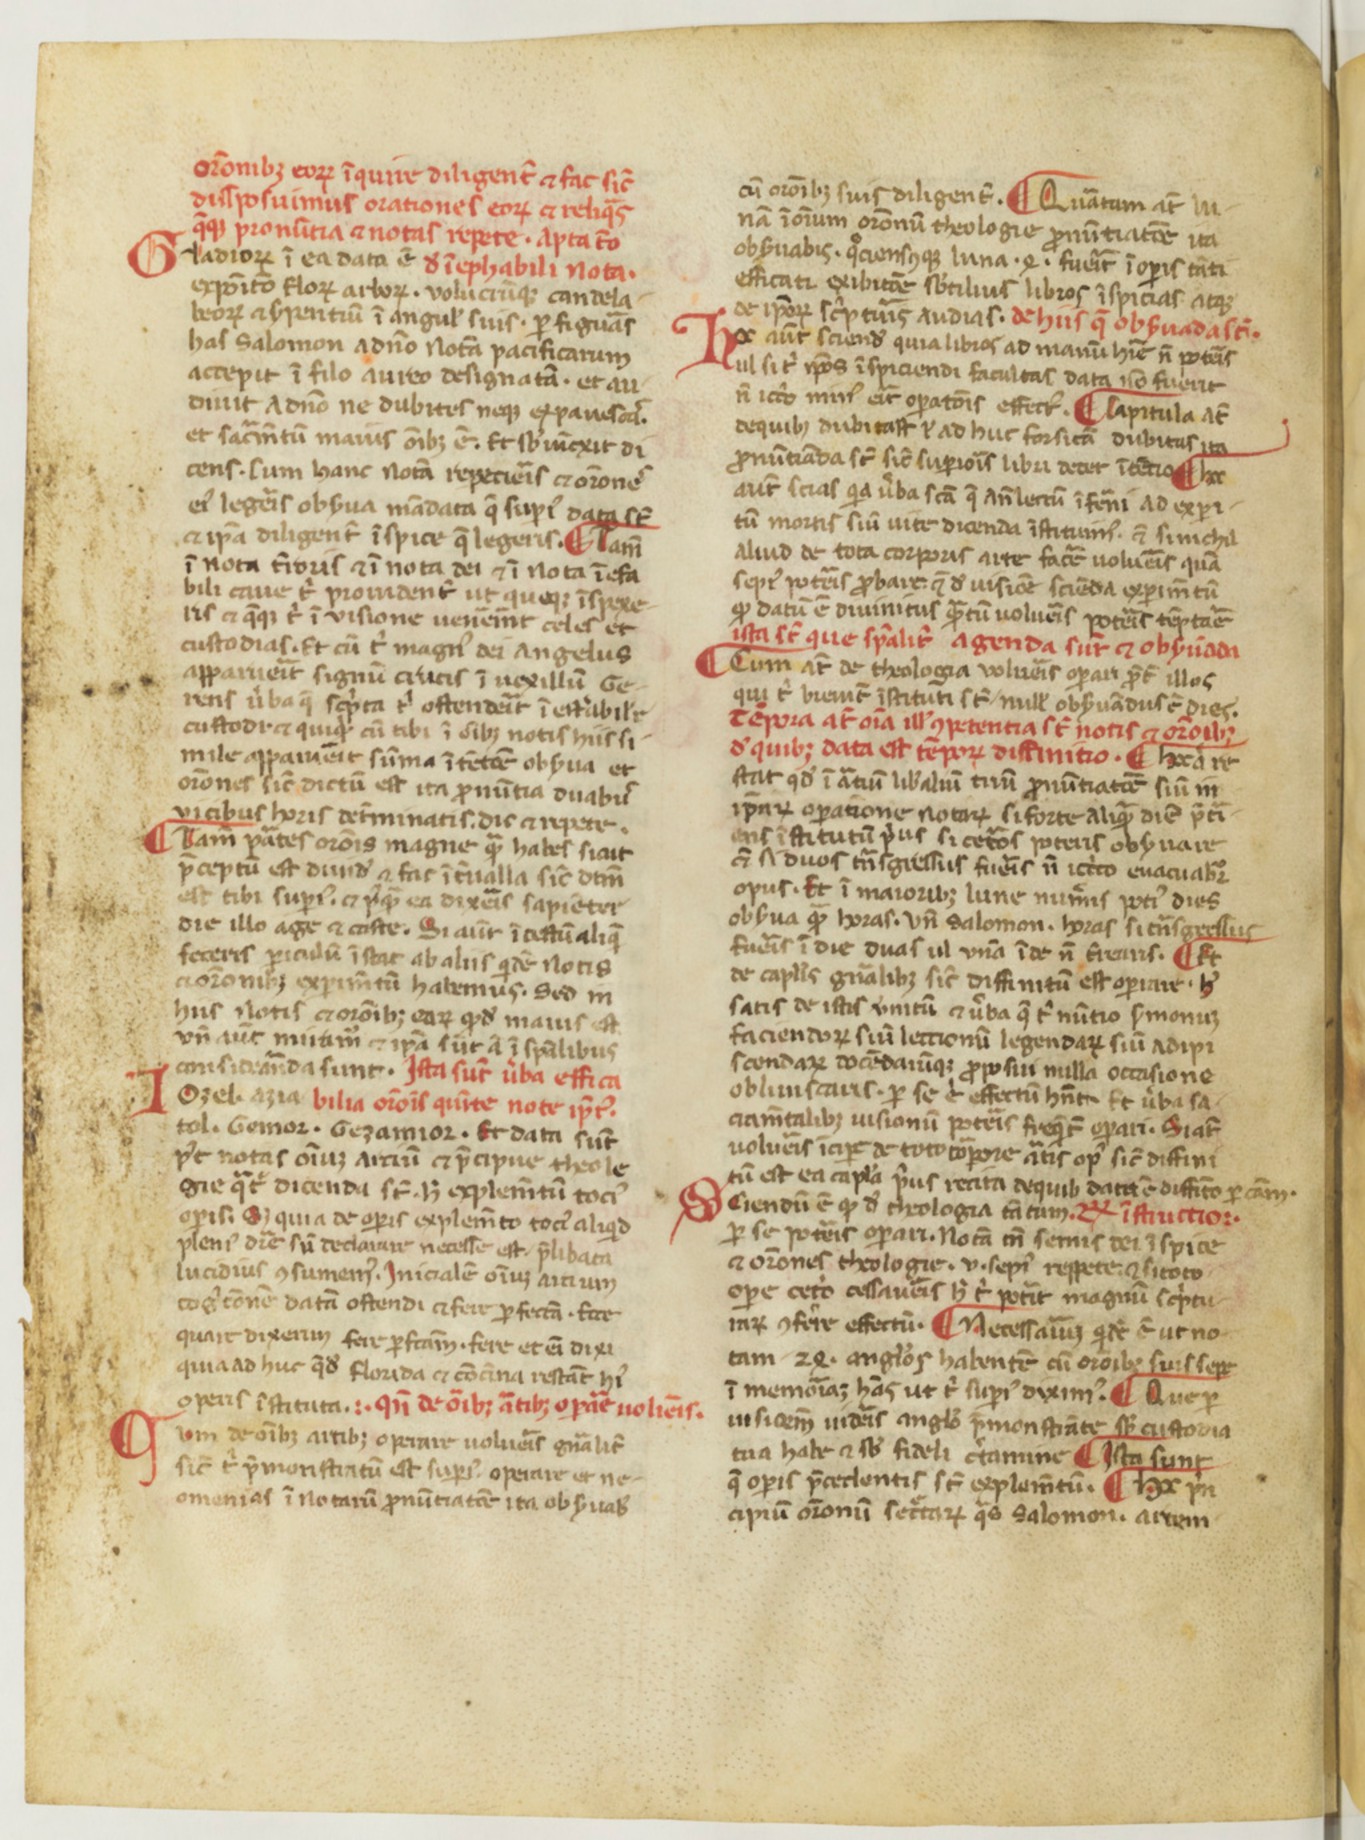 orōnibꝫ eoꝝ īquire diligent̄ ⁊ fac sic̄
disposuimus orationes eoꝝ ⁊ reliq̄s
q̄qꝫ pronūtia ⁊ notas repete. Apta t̄o
Gladioꝝ ī ea data ē d̄ īephabili nota.
expoītō floꝝ arboꝝ. volucrūqꝫ candela-
broꝝ ⁊ ẜpentiū ī angul' suis. ꝑ figuās
has Salomon adn̄o notā pacificarum
accepit ī filo aureo designatā. et au
diuit adn̄o ne dubites neqꝫ expauescas.
et sacm̄tū maius om̄ibꝫ ē. Et sb̄iūcxit di
cens. Cum hanc notā repecieīs ⁊ orōnes
ei' legeīs obẜua mādata q̄ supi' data st̄
⁊ ip̄a diligent̄ īspice q̄ legeris. Tam̄
ī nota t̄roris ⁊ ī nota dei ⁊ ī nota īeffa
bili caue t̄ prouident̄ ut queqꝫ īspexe-
ris ⁊ q̄qꝫ t̄ ī visione uenēint celes et
custodias. Et cū t̄ magn' dei Angelus
apparueīt signū crucis ī uexillū Ge-
rens ūba q̄ scp̄ta t̄ ostendeīt ī
custodi ⁊ cū tibi ī oībꝫ notis hiis si-
mile appauēit sūma ītētōe obẜua et
orōnes sic̄ dictū est ita pronūtia duabus
vicibus horis det̄minatis dic ⁊ repete.
Tam̄ p̄tes orōis magne q̄ habes sicut
p̄ceptū est diuid' ⁊ fac īt̄ualla sic̄ dictū
est tibi supi'. ⁊ p̄q̄ ea dixeīs sapiēter
die illo age ⁊ caste. Si aūt īcestū aliq̄
feceris periculū īstat ab aliis qd̄ē notis
⁊ orōnibꝫ experim̄tū habemus. Sed in
hiis notis ⁊ orōibꝫ eaꝝ qd̄ maius est
vn̄ aūt ⁊ ip̄a sūt ī sp̄alibus
consideranda sunt. Ista sūt ūba effica
Iozel. azia bilia orōis quīte note ip̄i'.
tol. Gomor. Gezamior. Et data sunt
p̄t notas oīuꝫ artiū ⁊ p̄cipue theolo
gie q̄ t̄ dicenda st̄. h̄ explem̄tū toci'
opis. Sꝫ quia de opis explem̄to toci' aliqd
pleni' dicē sū declarare necesse est p̄libata
lucidius ꝯsumem'. Inicialē oīuꝫ artium
cog'tōnē datā ostendi ⁊ fere ꝑfectā. fere
quare dixerim fere ꝑfcām. fere et eī dixi
quia ad huc q̄d' florida ⁊ cōcina restāt hi'
operis īstituta. Qn̄ de oībꝫ ātibꝫ opāe uolūeis.
Qum de oībꝫ artibꝫ operare uolueīs gn̄alit̄
sic̄ t̄ p̄monstratū est supi' operare et ne-
omenias ī notarū pronūtiatōe ita obẜuab'
cū orōibꝫ suis diligent̄. Quātum at̄ lu-
nā ī oīum orōnū theologie pronūtiatōe ita
obẜuabis. quociensqꝫ luna fueīt ī opis tāti
efficati exibitōe sb̄tilius libros īspicias atqꝫ
de ip̄oꝝ scp̄tuīs Audias. de hiis q̄ obẜuāda st̄.
Hoc aūt sciend' quia libros ad manū hr̄e n̄ poteīs
ul si t̄ ip̄os īspiciendi facultas data nō fuerit
n̄ icc̄o min' eīt opatōis effect'. Capitula at̄
de quibꝫ dubitasti ⁊ ad huc forsitā dubitas ita
pronūtiāda st̄ sic̄ supiōis libri docet ītētio. Hoc
aūt scias qd ūba scā q̄ an̄ lectū īfm̄i ad experi-
tū mortis siū uite dicenda īstituim'. ⁊ si nichil
aliud de tota corporis arte facē volueīs quā
sepi' poteīs probare ⁊ d' visiōe sciēda experim̄tū
qd datū ē diuinitus q̄tū volueīs poteīs tēptāe
ista st̄ que sp̄alit̄ agenda sūt ⁊ obẜuāda
Cum at̄ de theologia volueīs opari p̄t̄ illos
qui t̄ bieuit̄ īstituti st̄ null' obẜuādus ē dies.
Tēpora at̄ oīa ill' ꝯpetentia st̄ notis ⁊ orōibꝫ
d' quibꝫ data est tēpoꝝ diffinitio. hoc a re
stat qd' ī atiū lib'aliū triū pronūtiatōe siū in
ip̄aꝝ operatione notaꝝ si forte aliq̄ diē p̄ti
eris īstitutū p̄us si cet̄os poteris obẜuare
⁊ si duos tn̄sgressus fueīs n̄ icc̄o euacuabit'
opus. Et ī maioribꝫ lune num̄is poti' dies
obẜua q̄ horas. Vn̄ Salomon. horas si tn̄sgressus
fueīs ī die duas ul unā īde n̄ Et
de cap̄lis gn̄alibꝫ sic̄ diffinitū est operare. h̄
satis de istis ⁊ ūba q̄ t̄ nūtio ẜmonuꝫ
faciendoꝝ siū lectionū legendaꝝ siū adipi
scendaꝝ docēdarūqꝫ proposui nulla occasione
obliuiscaris. per se ē effectū hn̄t Et ūba sa-
ciam̄talibꝫ visionū poteīs freq̄t̄ opari. Si at̄
volueīs īcipe de toto corpore atis op' sic̄ diffini
tū est ea cap̄la p̄us recita de quibꝫ data ē diffito
Sciendū ē qd d' theologia tātum. īstructio.
per se poteīs opari. Notā tn̄ semis dei īspice
⁊ orōnes theologie. v. sepi' repete ⁊ si toto
ope cet̄o cessaueīs h̄ t̄ pot̄it magnū scp̄tu-
raꝝ ꝯferre effectū. Necessariuꝫ qd̄ē ē ut no-
tam 22. anglōs habentē cū orōibꝫ suis sepe
ī memoriaꝫ hēas ut t̄ supi' dixim'. Que per
uisionem uideīs anglō p̄monstrāte sb̄ custodia
tua habe ⁊ sb̄ fideli c̄tamine Ista sunt
q̄ opis p̄cedentis st̄ explem̄tū. Hoc p̄n
cipiū orōnū sectaꝝ q̄s Salomon. artem